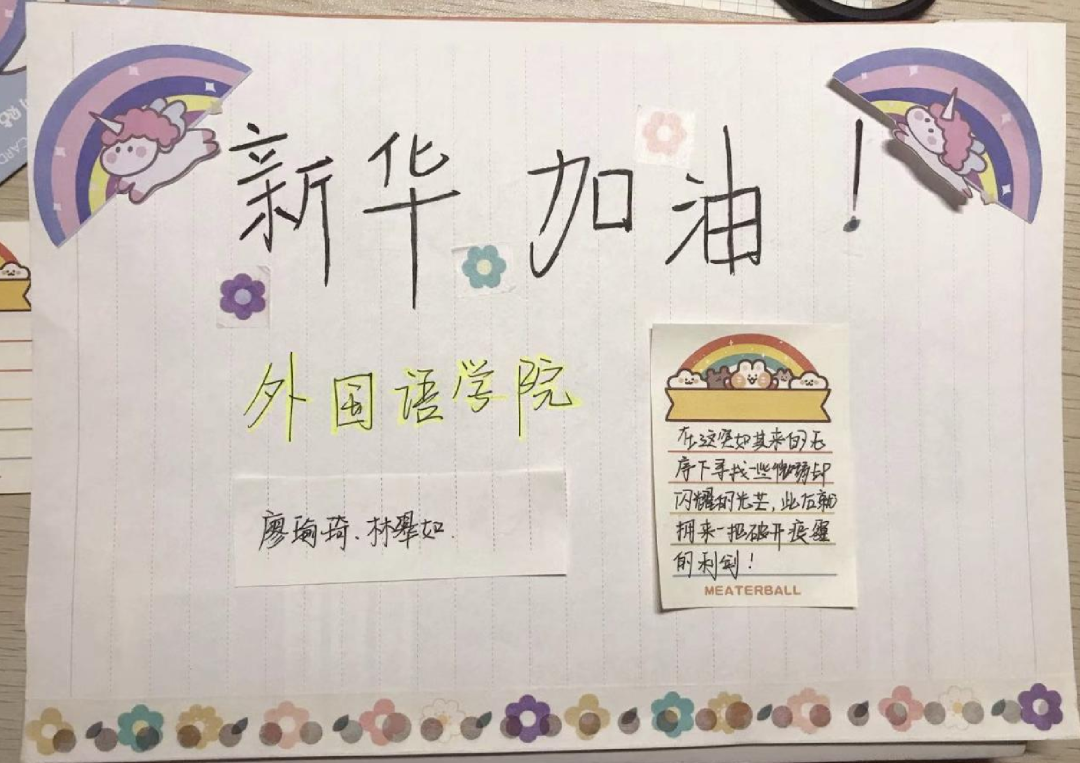 新华 加油！
外国语学院
廖瑜琦、林翠如
在这突如其来的无
序下寻找一些
闪耀的光芒，此后就
拥来一把破开疫霾
的利剑！
MEATERBALL
CARD